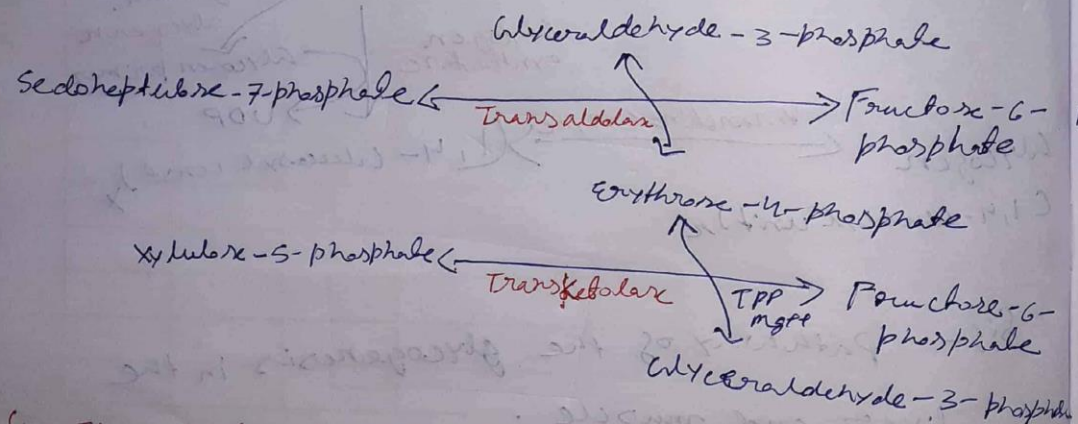 Glyceraldehyde-3-phosphate
Sedoheptulose-7-phosphate
Transaldolase
Fructose-6-
phosphate
Erythrose-4-phosphate
Xylulose-5-phosphate
Transketolase
TPP
Mg++
Fructose-6-
phosphate
Glyceraldehyde-3-phosph